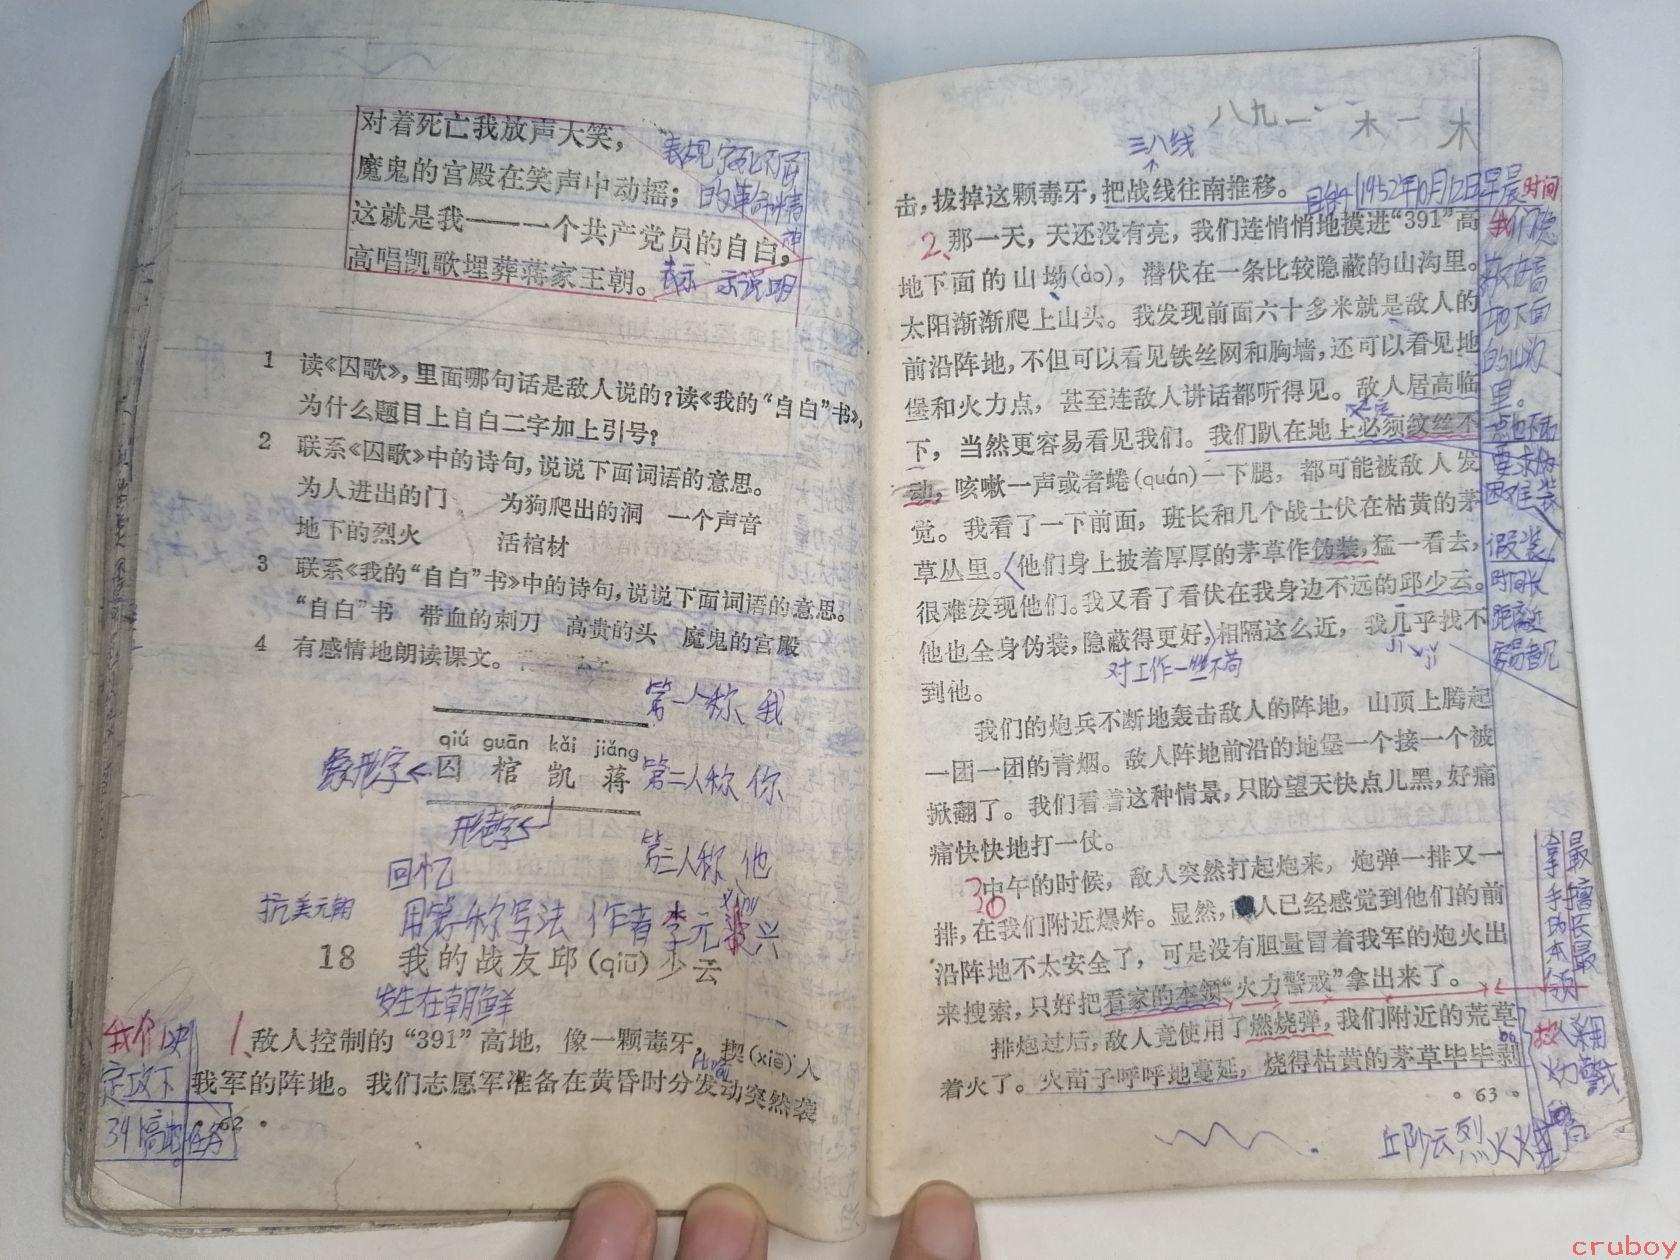 对着死亡我放声大笑，
魔鬼的宫殿在笑声中动摇；
这就是我——一个共产党员的自白，
高唱凯歌埋葬蒋家王朝。
1 读《囚歌》，里面哪句话是敌人说的？读《我的“自白”书》，
为什么题目上自白二字加上引号？
2 联系《囚歌》中的诗句，说说下面词语的意思。
为人进出的门 为狗爬出的洞 一个声音
地下的烈火 活棺材
3 联系《我的“自白”书》中的诗句，说说下面词语的意思。
“自白”书 带血的刺刀 高贵的头 魔鬼的宫殿
4 有感情地朗读课文。
第一人称、我
qiú guān kǎi jiǎng
象形字 囚 棺 凯 蒋 第二人称 你
第三人称 他
回忆
抗美元朝 作者李元兴
18 我的战友邱（qiū）少云
发生在朝鲜
1、敌人控制的“391”高地，像一颗毒牙，揳（xiē）入
我军的阵地。我们志愿军准备在黄昏时分发动突然袭
· 62 ·
八九二 木一木
三八线
击，拔掉这颗毒牙，把战线往南推移。
1952年10月12日早晨 时间
2、那一天，天还没有亮，我们连悄悄地摸进“391”高
地下面的山坳（ào），潜伏在一条比较隐蔽的山沟里。
太阳渐渐爬上山头。我发现前面六十多米就是敌人的
前沿阵地，不但可以看见铁丝网和胸墙，还可以看见地
堡和火力点，甚至连敌人讲话都听得见。敌人居高临
下，当然更容易看见我们。我们趴在地上必须纹丝不
动，咳嗽一声或者蜷（quán）一下腿，都可能被敌人发
觉。我看了一下前面，班长和几个战士伏在枯黄的茅
草丛里。他们身上披着厚厚的茅草作伪装，猛一看去，
很难发现他们。我又看了看伏在我身边不远的邱少云。
他也全身伪装，隐蔽得更好，相隔这么近，我几乎找不
到他。
对工作一丝不苟
假装
时间长
距离近
容易看见
我们的炮兵不断地轰击敌人的阵地，山顶上腾起
一团一团的青烟。敌人阵地前沿的地堡一个接一个被
掀翻了。我们看着这种情景，只盼望天快点儿黑，好痛
痛快快地打一仗。
中午的时候，敌人突然打起炮来，炮弹一排又一
排，在我们附近爆炸。显然，敌人已经感觉到他们的前
沿阵地不太安全了，可是没有胆量冒着我军的炮火出
来搜索，只好把看家的本领“火力警戒”拿出来了。
最擅长最
拿手的本领
排炮过后，敌人竟使用了燃烧弹，我们附近的荒草
着火了。火苗子呼呼地蔓延，烧得枯黄的茅草毕毕剥
· 63 ·
cruboy